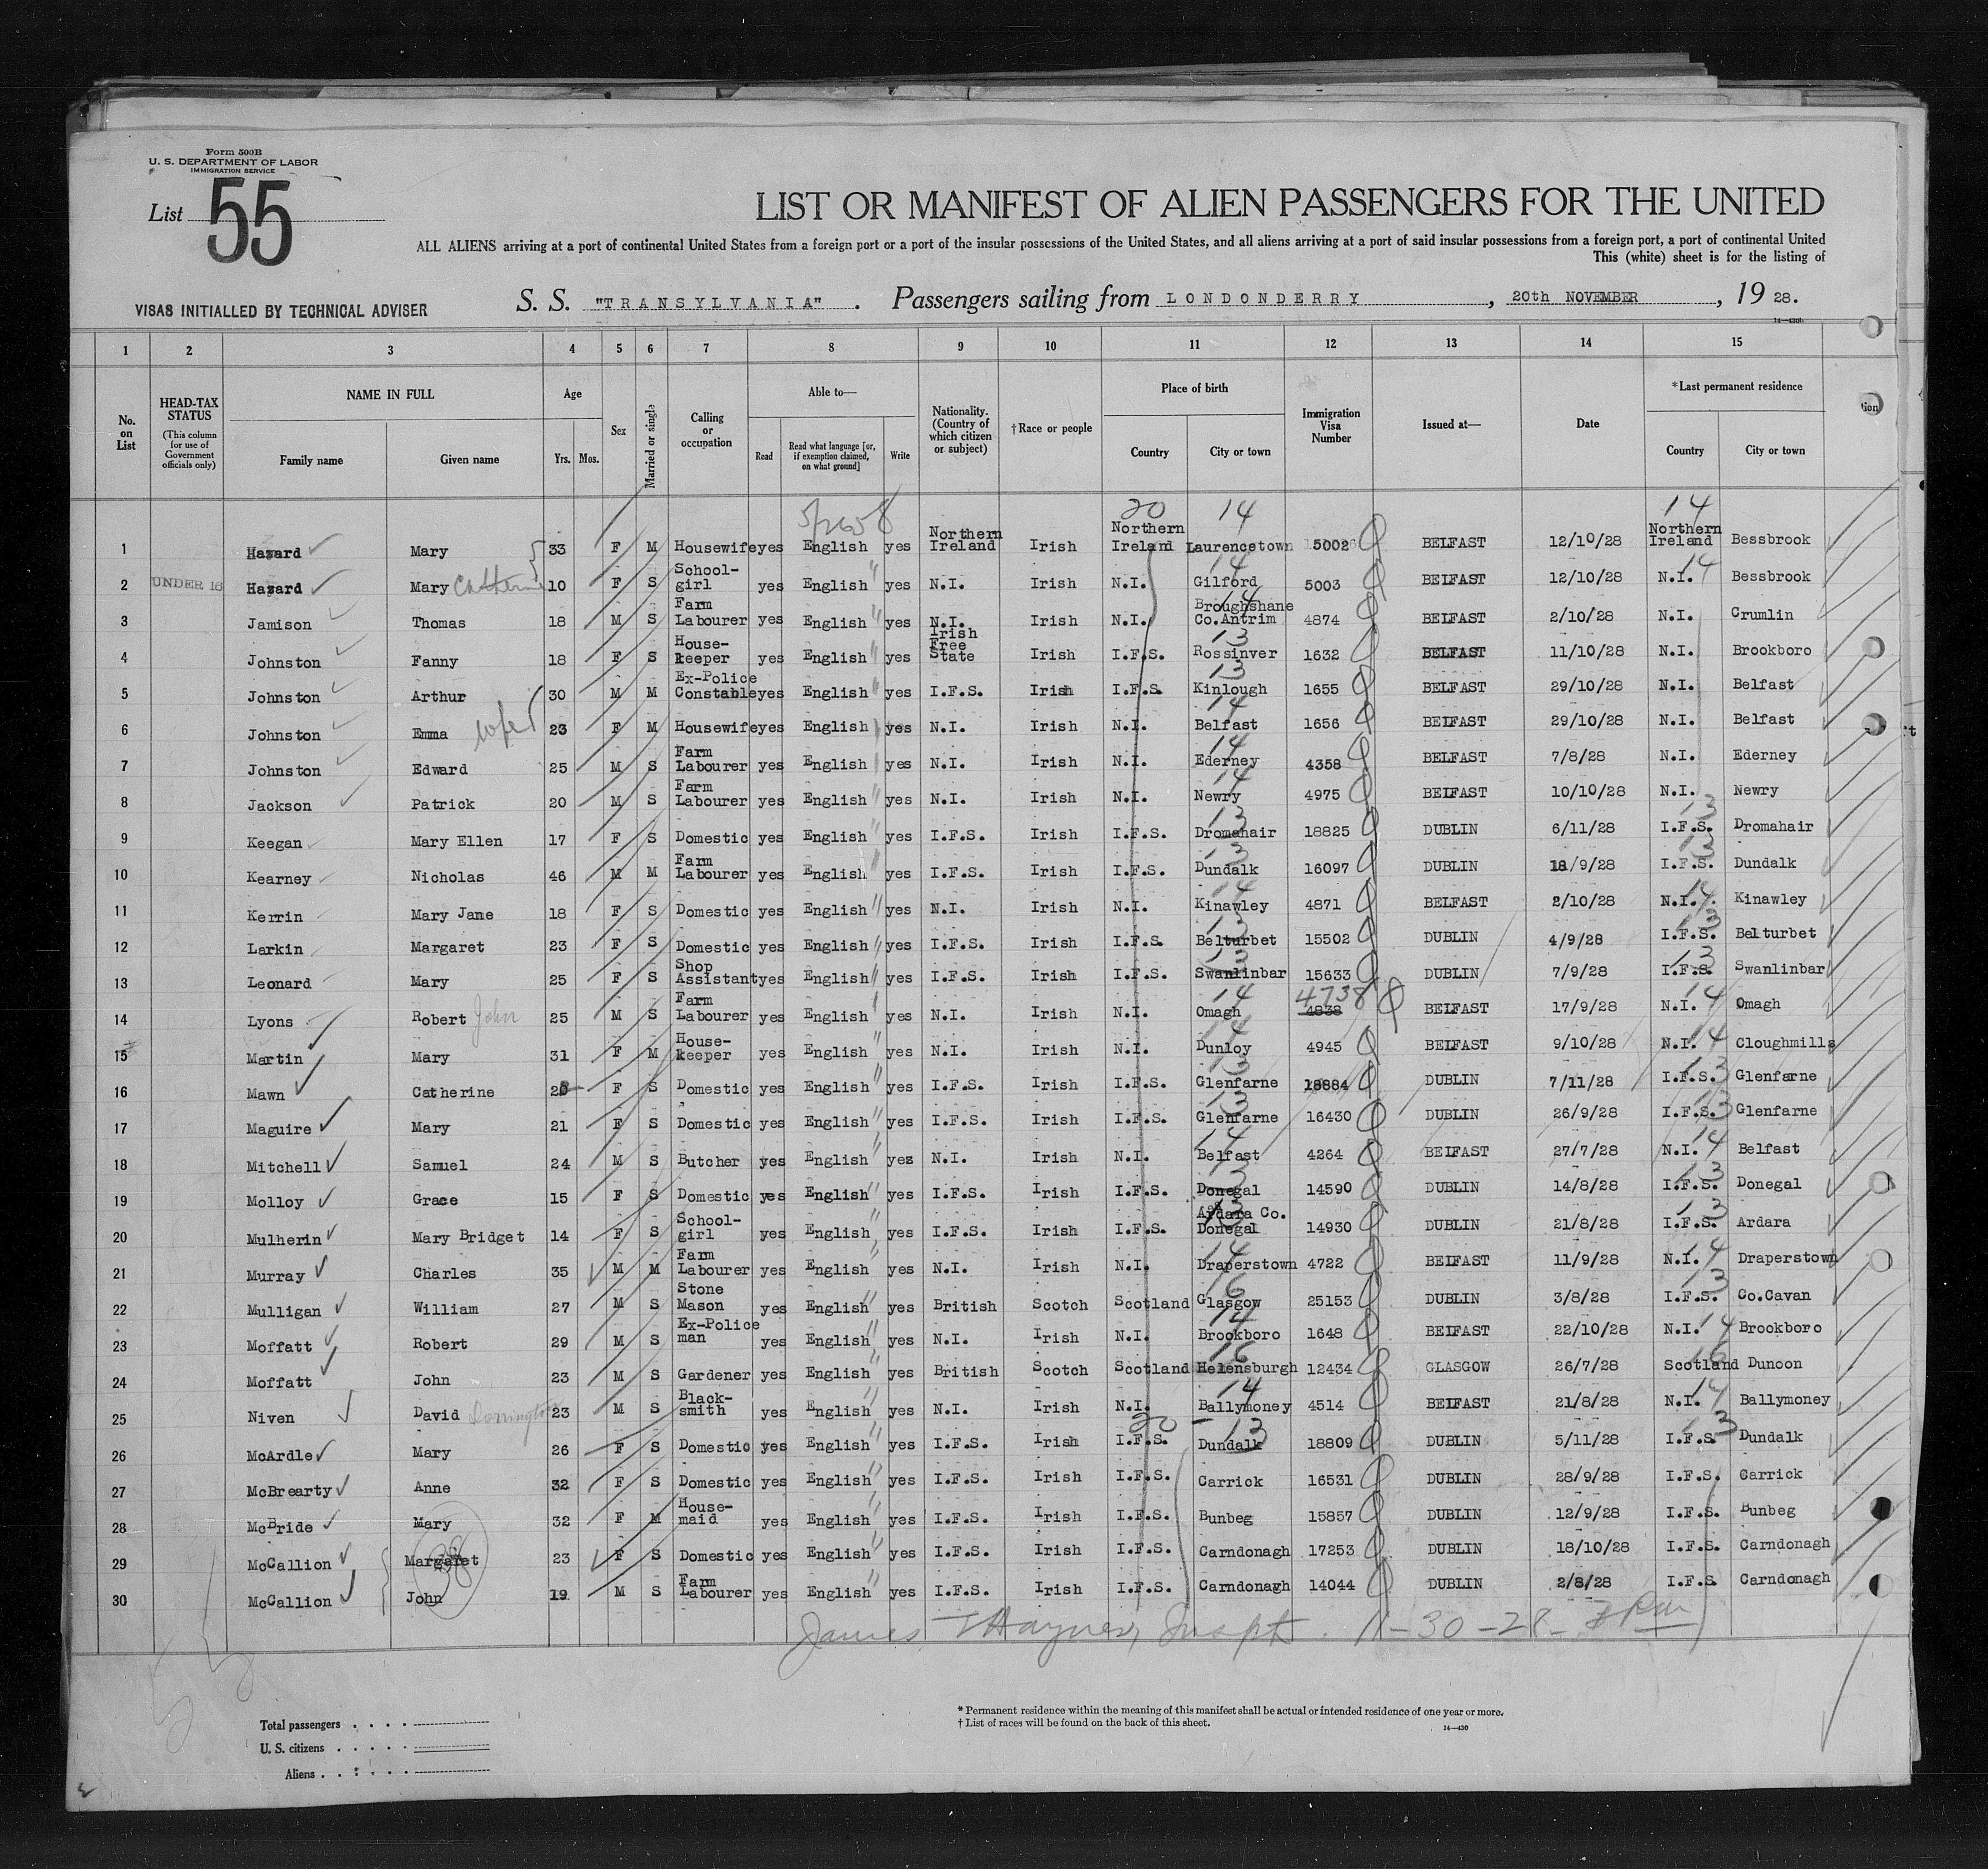 Form 500B
U. S. DEPARTMENT OF LABOR
IMMIGRATION SERVICE
List 55
LIST OR MANIFEST OF ALIEN PASSENGERS FOR THE UNITED
ALL ALIENS arriving at a port of continental United States from a foreign port or a port of the insular possessions of the United States, and all aliens arriving at a port of said insular possessions from a foreign port, a port of continental United
This (white) sheet is for the listing of
VISAS INITIALLED BY TECHNICAL ADVISER
S. S. "TRANSYLVANIA". Passengers sailing from LONDONDERRY, 20th NOVEMBER, 19 28.
1 2 3 4 5 6 7 8 9 10 11 12 13 14 15
No. on List
HEAD-TAX STATUS
(This column for use of Government officials only)
NAME IN FULL
Family name Given name
Age
Yrs. Mos.
Sex
Married or single
Calling or occupation
Able to—
Read
Read what language [or, if exemption claimed, on what ground]
Write
Nationality. (Country of which citizen or subject)
†Race or people
Place of birth
Country City or town
Immigration Visa Number
Issued at—
Date
*Last permanent residence
Country City or town
20 14 14
1 Hazard Mary 33 F M Housewife yes English yes Northern Ireland Irish Northern Ireland Laurencetown 5002 BELFAST 12/10/28 Northern Ireland Bessbrook
2 UNDER 16 Hazard Mary Catherine 10 F S School-girl yes English yes N.I. Irish N.I. Gilford 5003 BELFAST 12/10/28 N.I. Bessbrook
3 Jamison Thomas 18 M S Farm Labourer yes English yes N.I. Irish N.I. Broughshane Co.Antrim 4874 BELFAST 2/10/28 N.I. Crumlin
4 Johnston Fanny 18 F S House-keeper yes English yes Irish Free State Irish I.F.S. Rossinver 1632 BELFAST 11/10/28 N.I. Brookboro
5 Johnston Arthur 30 M M Ex-Police Constable yes English yes I.F.S. Irish I.F.S. Kinlough 1655 BELFAST 29/10/28 N.I. Belfast
6 Johnston Emma wife 23 F M Housewife yes English yes N.I. Irish N.I. Belfast 1656 BELFAST 29/10/28 N.I. Belfast
7 Johnston Edward 25 M S Farm Labourer yes English yes N.I. Irish N.I. Ederney 4358 BELFAST 7/8/28 N.I. Ederney
8 Jackson Patrick 20 M S Farm Labourer yes English yes N.I. Irish N.I. Newry 4975 BELFAST 10/10/28 N.I. Newry
9 Keegan Mary Ellen 17 F S Domestic yes English yes I.F.S. Irish I.F.S. Dromahair 18825 DUBLIN 6/11/28 I.F.S. Dromahair
10 Kearney Nicholas 46 M M Farm Labourer yes English yes I.F.S. Irish I.F.S. Dundalk 16097 DUBLIN 18/9/28 I.F.S. Dundalk
11 Kerrin Mary Jane 18 F S Domestic yes English yes N.I. Irish N.I. Kinawley 4871 BELFAST 2/10/28 N.I. Kinawley
12 Larkin Margaret 23 F S Domestic yes English yes I.F.S. Irish I.F.S. Belturbet 15502 DUBLIN 4/9/28 I.F.S. Belturbet
13 Leonard Mary 25 F S Shop Assistant yes English yes I.F.S. Irish I.F.S. Swanlinbar 15633 DUBLIN 7/9/28 I.F.S. Swanlinbar
14 Lyons Robert John 25 M S Farm Labourer yes English yes N.I. Irish N.I. Omagh 4738 4838 BELFAST 17/9/28 N.I. Omagh
15 Martin Mary 31 F M House-keeper yes English yes N.I. Irish N.I. Dunloy 4945 BELFAST 9/10/28 N.I. Cloughmills
16 Mawn Catherine F S Domestic yes English yes I.F.S. Irish I.F.S. Glenfarne 18884 DUBLIN 7/11/28 I.F.S. Glenfarne
17 Maguire Mary 21 F S Domestic yes English yes I.F.S. Irish I.F.S. Glenfarne 16430 DUBLIN 26/9/28 I.F.S. Glenfarne
18 Mitchell Samuel 24 M S Butcher yes English yes N.I. Irish N.I. Belfast 4264 BELFAST 27/7/28 N.I. Belfast
19 Molloy Grace 15 F S Domestic yes English yes I.F.S. Irish I.F.S. Donegal 14590 DUBLIN 14/8/28 I.F.S. Donegal
20 Mulherin Mary Bridget 14 F S School-girl yes English yes I.F.S. Irish I.F.S. Ardara Co. Donegal 14930 DUBLIN 21/8/28 I.F.S. Ardara
21 Murray Charles 35 M M Farm Labourer yes English yes N.I. Irish N.I. Draperstown 4722 BELFAST 11/9/28 N.I. Draperstown
22 Mulligan William 27 M S Stone Mason yes English yes British Scotch Scotland Glasgow 25153 DUBLIN 3/8/28 I.F.S. Co.Cavan
23 Moffatt Robert 29 M S Ex-Police man yes English yes N.I. Irish N.I. Brookboro 1648 BELFAST 22/10/28 N.I. Brookboro
24 Moffatt John 23 M S Gardener yes English yes British Scotch Scotland Helensburgh 12434 GLASGOW 26/7/28 Scotland Dunoon
25 Niven David 23 M S Black-smith yes English yes N.I. Irish N.I. Ballymoney 4514 BELFAST 21/8/28 N.I. Ballymoney
26 McArdle Mary 26 F S Domestic yes English yes I.F.S. Irish I.F.S. Dundalk 18809 DUBLIN 5/11/28 I.F.S. Dundalk
27 McBrearty Anne 32 F S Domestic yes English yes I.F.S. Irish I.F.S. Carrick 16531 DUBLIN 28/9/28 I.F.S. Carrick
28 McBride Mary 32 F M House-maid yes English yes I.F.S. Irish I.F.S. Bunbeg 15857 DUBLIN 12/9/28 I.F.S. Bunbeg
29 McCallion Margaret 23 F S Domestic yes English yes I.F.S. Irish I.F.S. Carndonagh 17253 DUBLIN 18/10/28 I.F.S. Carndonagh
30 McCallion John 19 M S Farm Labourer yes English yes I.F.S. Irish I.F.S. Carndonagh 14044 DUBLIN 2/8/28 I.F.S Carndonagh
James Haynes, Inspt. 11-30-28
Total passengers
U. S. citizens
Aliens
* Permanent residence within the meaning of this manifest shall be actual or intended residence of one year or more.
† List of races will be found on the back of this sheet.
14—430